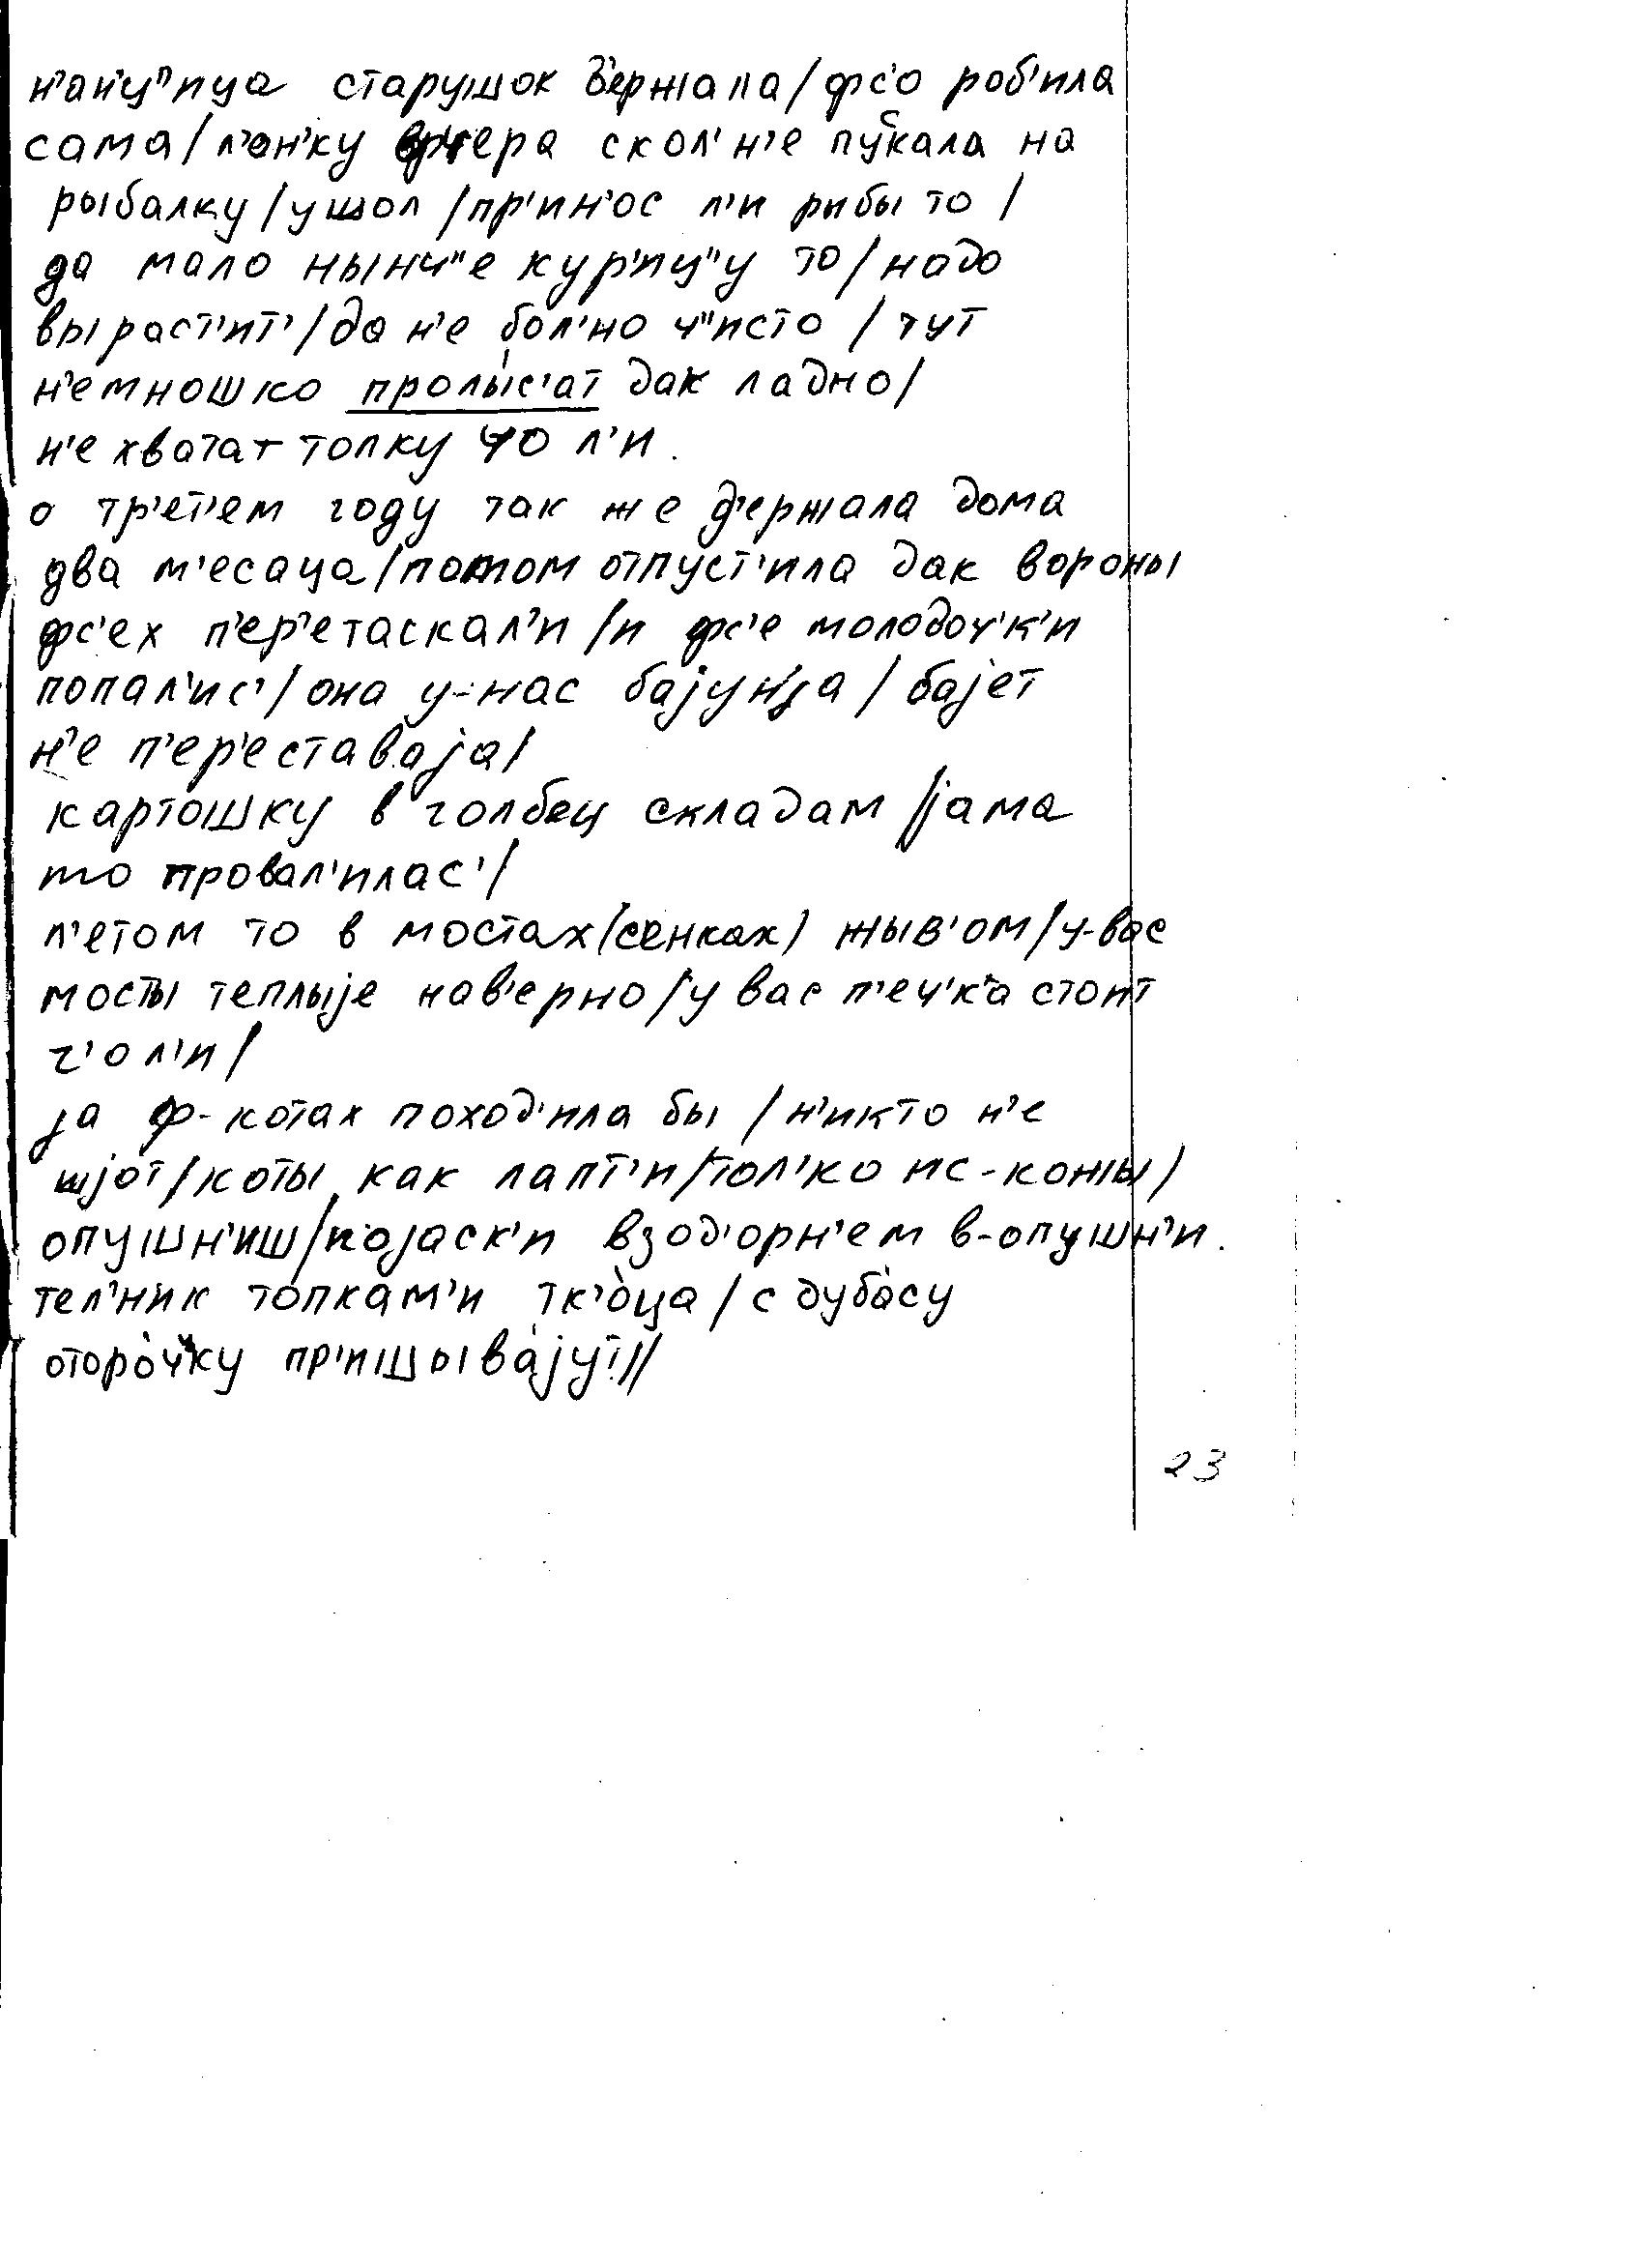 н'ан'ц"ица старушок д'ержала/фс'о роб'ила
сама/л'он'ку вчера скол' н'е пускала на
рыбалку/ушол/пр'ин'ос л'и рибы то/
да мало нынч"е кур'иц"у то/надо
выраст'ит'/да н'е бол'но ч"исто/тут
н'емношко пролы́с'ат дак ладно/
н'е хватат толку чо л'и.
о тр'ет'ем году так же д'ержала дома
два м'есаца/потом отпуст'ила дак вороны
фс'ех п'ер'етаскал'и/и фс'е молодоч'к'и
попал'ис'/она у-нас бајун'ја/бајет
н'е п'ер'еставаја/
картошку в голбец складам/јама
то провал'илас'/
л'етом то в мостах(сенках) жыв'ом/у-вас
мосты теплыје нав'ерно/у вас п'еч'к'а стоит
ч'о л'и/
ја ф-котах поход'ила бы/н'икто н'е
шјот/коты как лапт'и/тол'ко ис-кожы/
опушн'иш/појаск'и взод'орн'ем в-опушн'и.
тел'ник топкам'и тк'о̀ца/с дуба̀су
оторо̀ч"ку пр'ишыва̀јут//
23